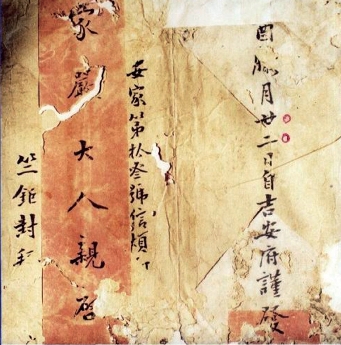 月廿二日自吉安府謹發
安家第拾叁號信煩
家嚴大人親啓
竺鉅封